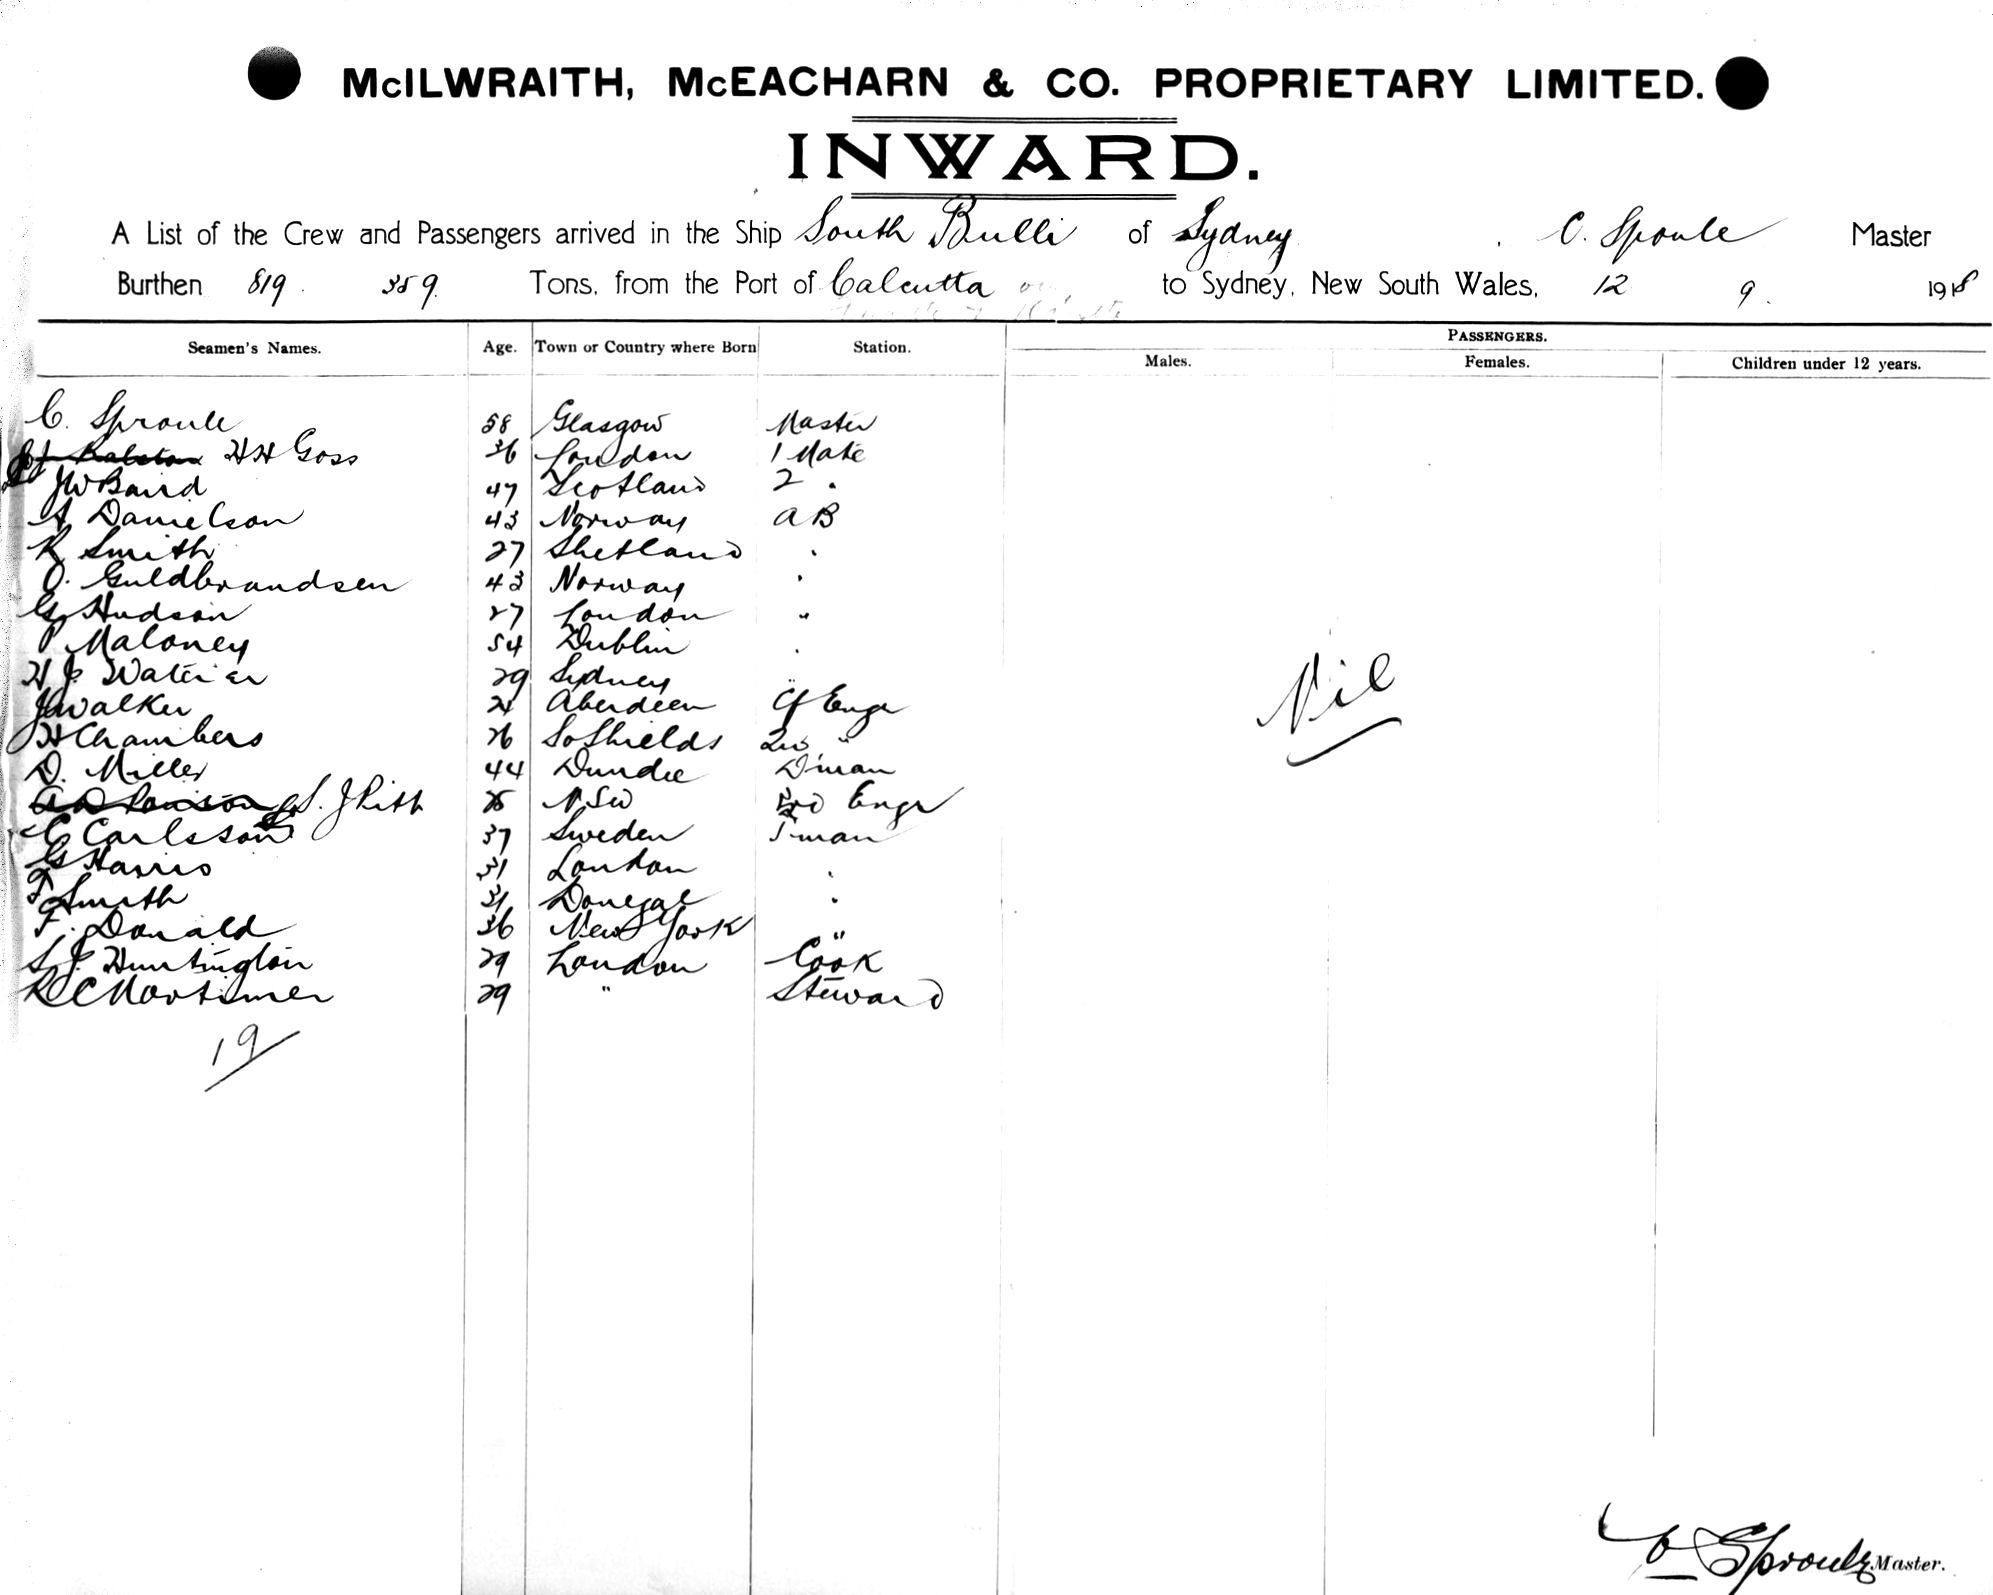 McILWRAITH, McEACHARN & CO. PROPRIETARY LIMITED.
INWARD.
A List of the Crew and Passengers arrived in the Ship South Bulli of Sydney, C. Sproule Master
Burthen 819. 359. Tons, from the Port of Calcutta to Sydney, New South Wales, 12 9. 1918
Seamen's Names. Age. Town or Country where Born Station. PASSENGERS.
Males. Females. Children under 12 years.
C. Sproule 58 Glasgow Master
Ralston H H Goss 36 London 1 Mate
J W Baird 47 Scotland 2 "
A Danielson 43 Norway A B
R Smith 27 Shetland "
O. Guldbrandsen 43 Norway "
G Hudson 27 London "
P Maloney 54 Dublin "
H J Sydney "
29
J Walker Aberdeen Cf Engr
H Chambers 26 So Shields 2nd "
D. Miller 44 Dundee D'man
S. J Pith N S W 3rd Engr
C Carlsson 37 Sweden F'man
G Harris 31 London "
F Smith 31 Donegal "
F. Donald 36 New York "
S J Huntington 29 London Cook
R C Mortimer 29 " Steward
19
Nil
C Sproule Master.